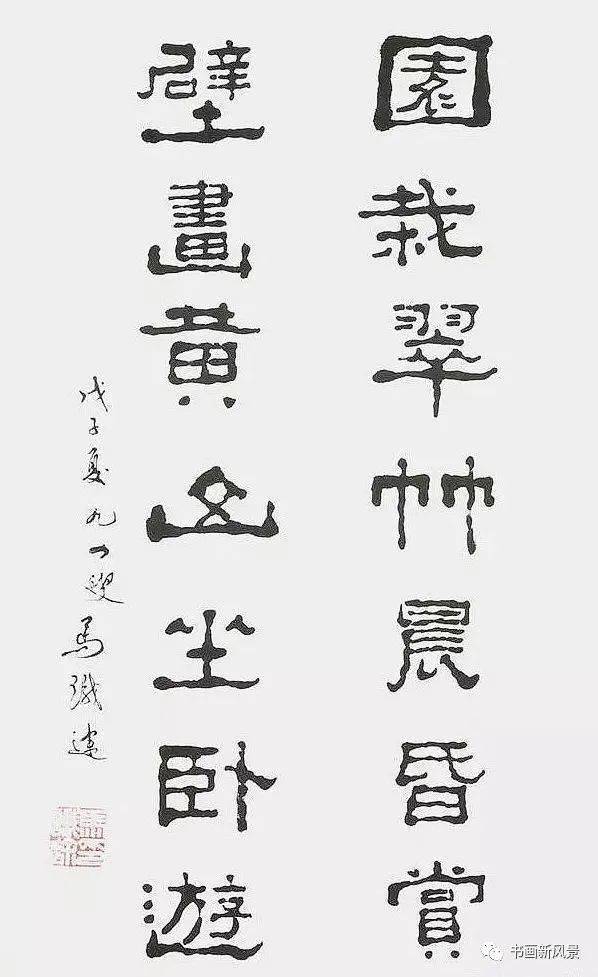 園栽翠竹晨昏賞
壁畫黃山坐卧遊
戊子夏九四叟馬識途
书画新风景